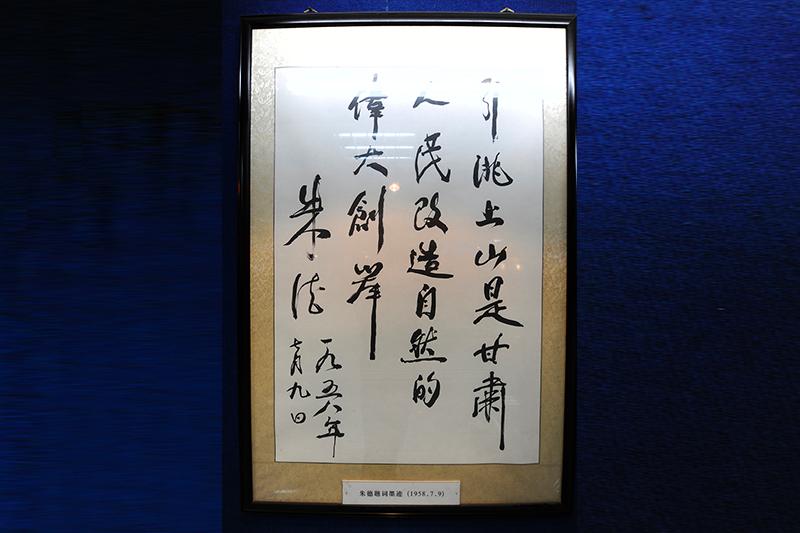 引洮上山是甘肅
人民改造自然的
偉大創舉
朱德
一九五八年
七月九日
朱德题词墨迹（1958.7.9）